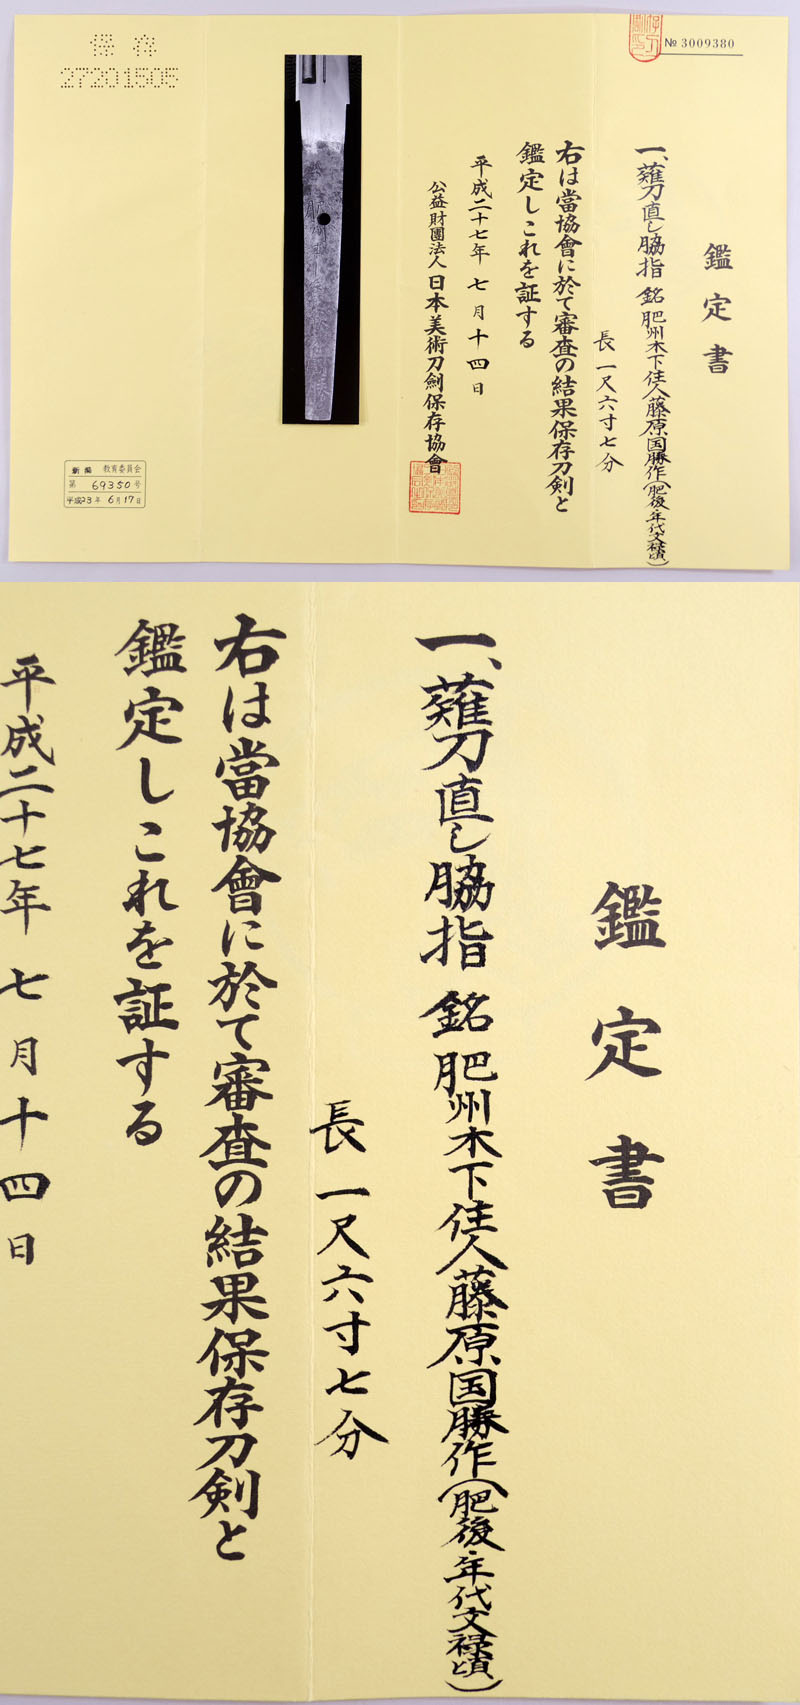 № 3009380
鑑定書
一、薙刀直し脇指 銘 肥州木下住人藤原国勝作(肥後・年代文禄頃)
長 一尺六寸七分
右は當協會に於て審査の結果保存刀剣と
鑑定しこれを証する
平成二十七年 七月十四日
公益財團法人 日本美術刀劍保存協會
保存
27201505
新潟 教育委員会
第 69350 号
平成23年 6月17日
鑑定書
一、薙刀直し脇指 銘 肥州木下住人藤原国勝作(肥後・年代文禄頃)
長 一尺六寸七分
右は當協會に於て審査の結果保存刀剣と
鑑定しこれを証する
平成二十七年 七月十四日